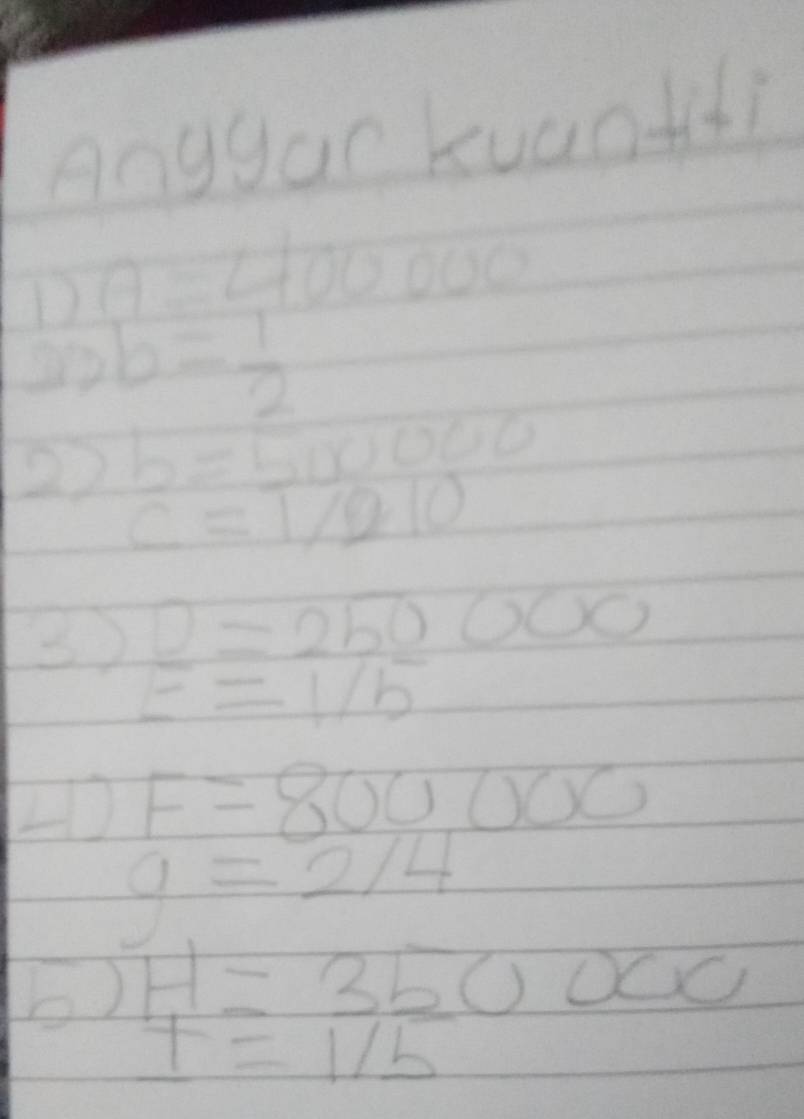 Anggar kuantiti
1) A = 400 000
b = 1/2
2) b = 500 000
C = 1/10
3) D = 250 000
E = 1/5
4) F = 800 000
g = 2/4
5) H = 350 000
I = 1/5